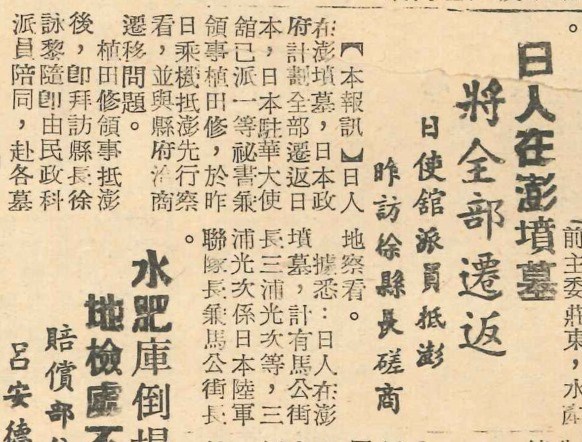 前主委莊東，水
日人在澎墳墓
將全部遷返
日使館派員抵澎
昨訪徐縣長磋商
【本報訊】日人
在澎墳墓，日本政
府計劃全部遷返日
本，日本駐華大使
舘已派一等祕書兼
領事植田修，於昨
日乘機抵澎先行察
看，並與縣府洽商
遷移問題。
植田修領事抵澎
後，卽拜訪縣長徐
詠黎隨卽由民政科
派員陪同，赴各墓
地察看。
據悉：日人在澎
墳墓，計有馬公街
長三浦光次等，三
浦光次係日本陸軍
聯隊長兼馬公街長
。
水肥庫倒
地檢處不
賠償部
呂安德